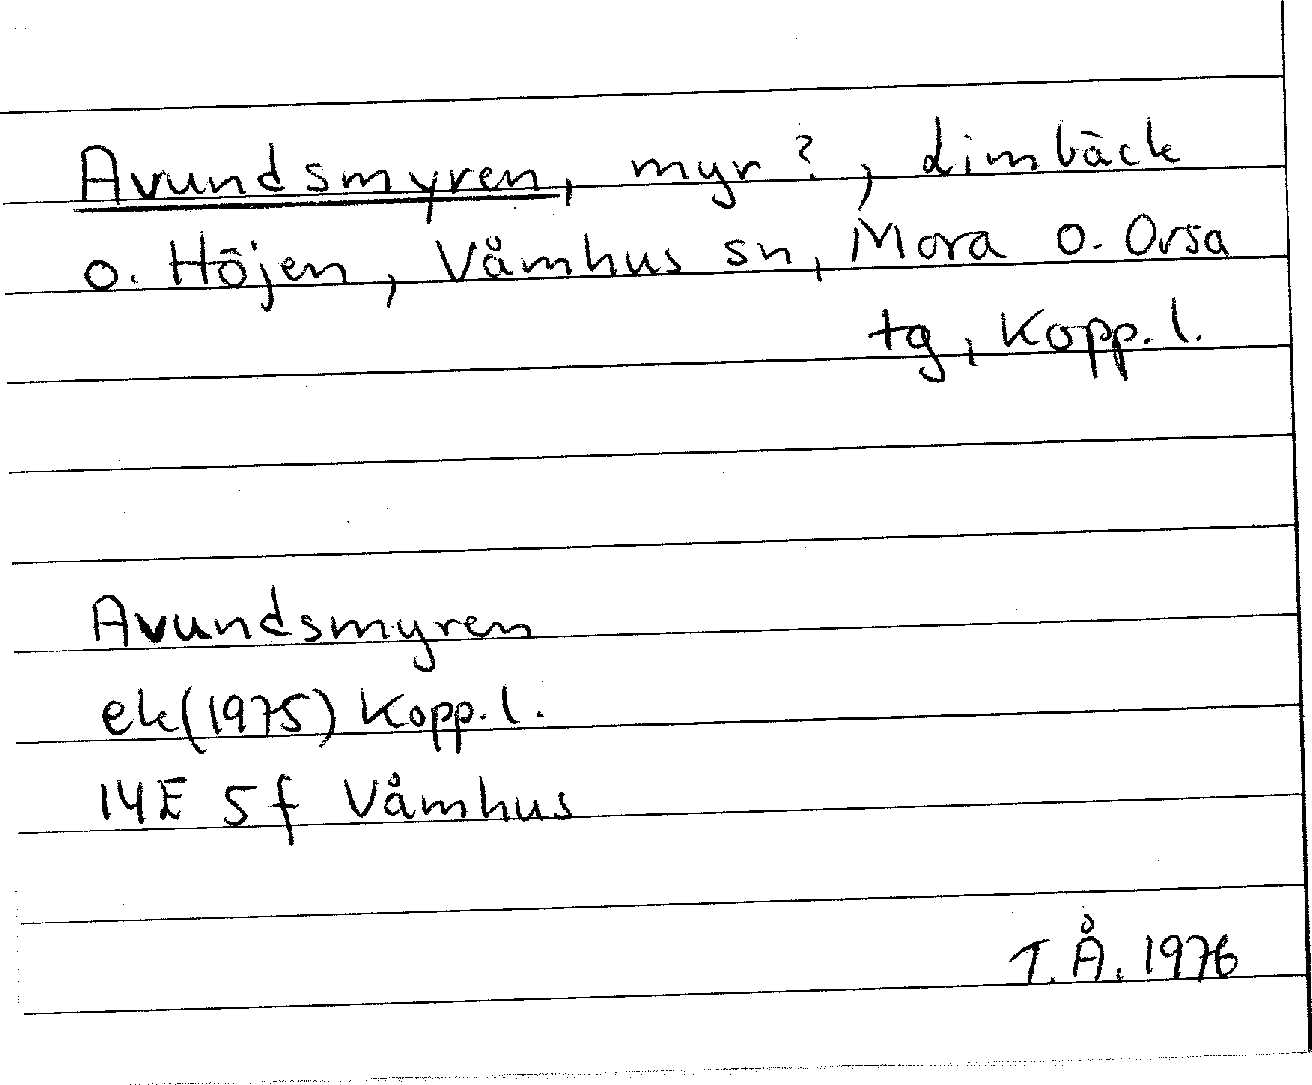 Avundsmyren, myr?, Limbäck
o. Höjen, Våmhus sn, Mora o. Orsa
tg, Kopp. l.
Avundsmyren
ek(1975) Kopp. l.
14E 5f Våmhus
T. Å. 1976